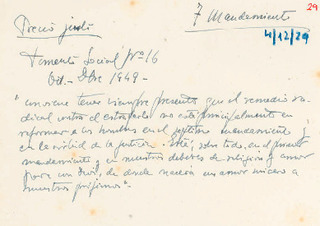 29
7 Mandamiento
Precio justo
4/12/29
Fomento Social Nº 16
Oct. - Dbre 1949 -
"Conviene tener siempre presente que el remedio ra-
dical contra el estraperlo no está principalmente en
reformar a los hombres en el séptimo mandamiento y
en la virtud de la justicia. Está, sobre todo, en el primer
mandamiento y en nuestros deberes de religión y amor
para con Dios, de donde nacerá un amor sincero a
nuestros prójimos".